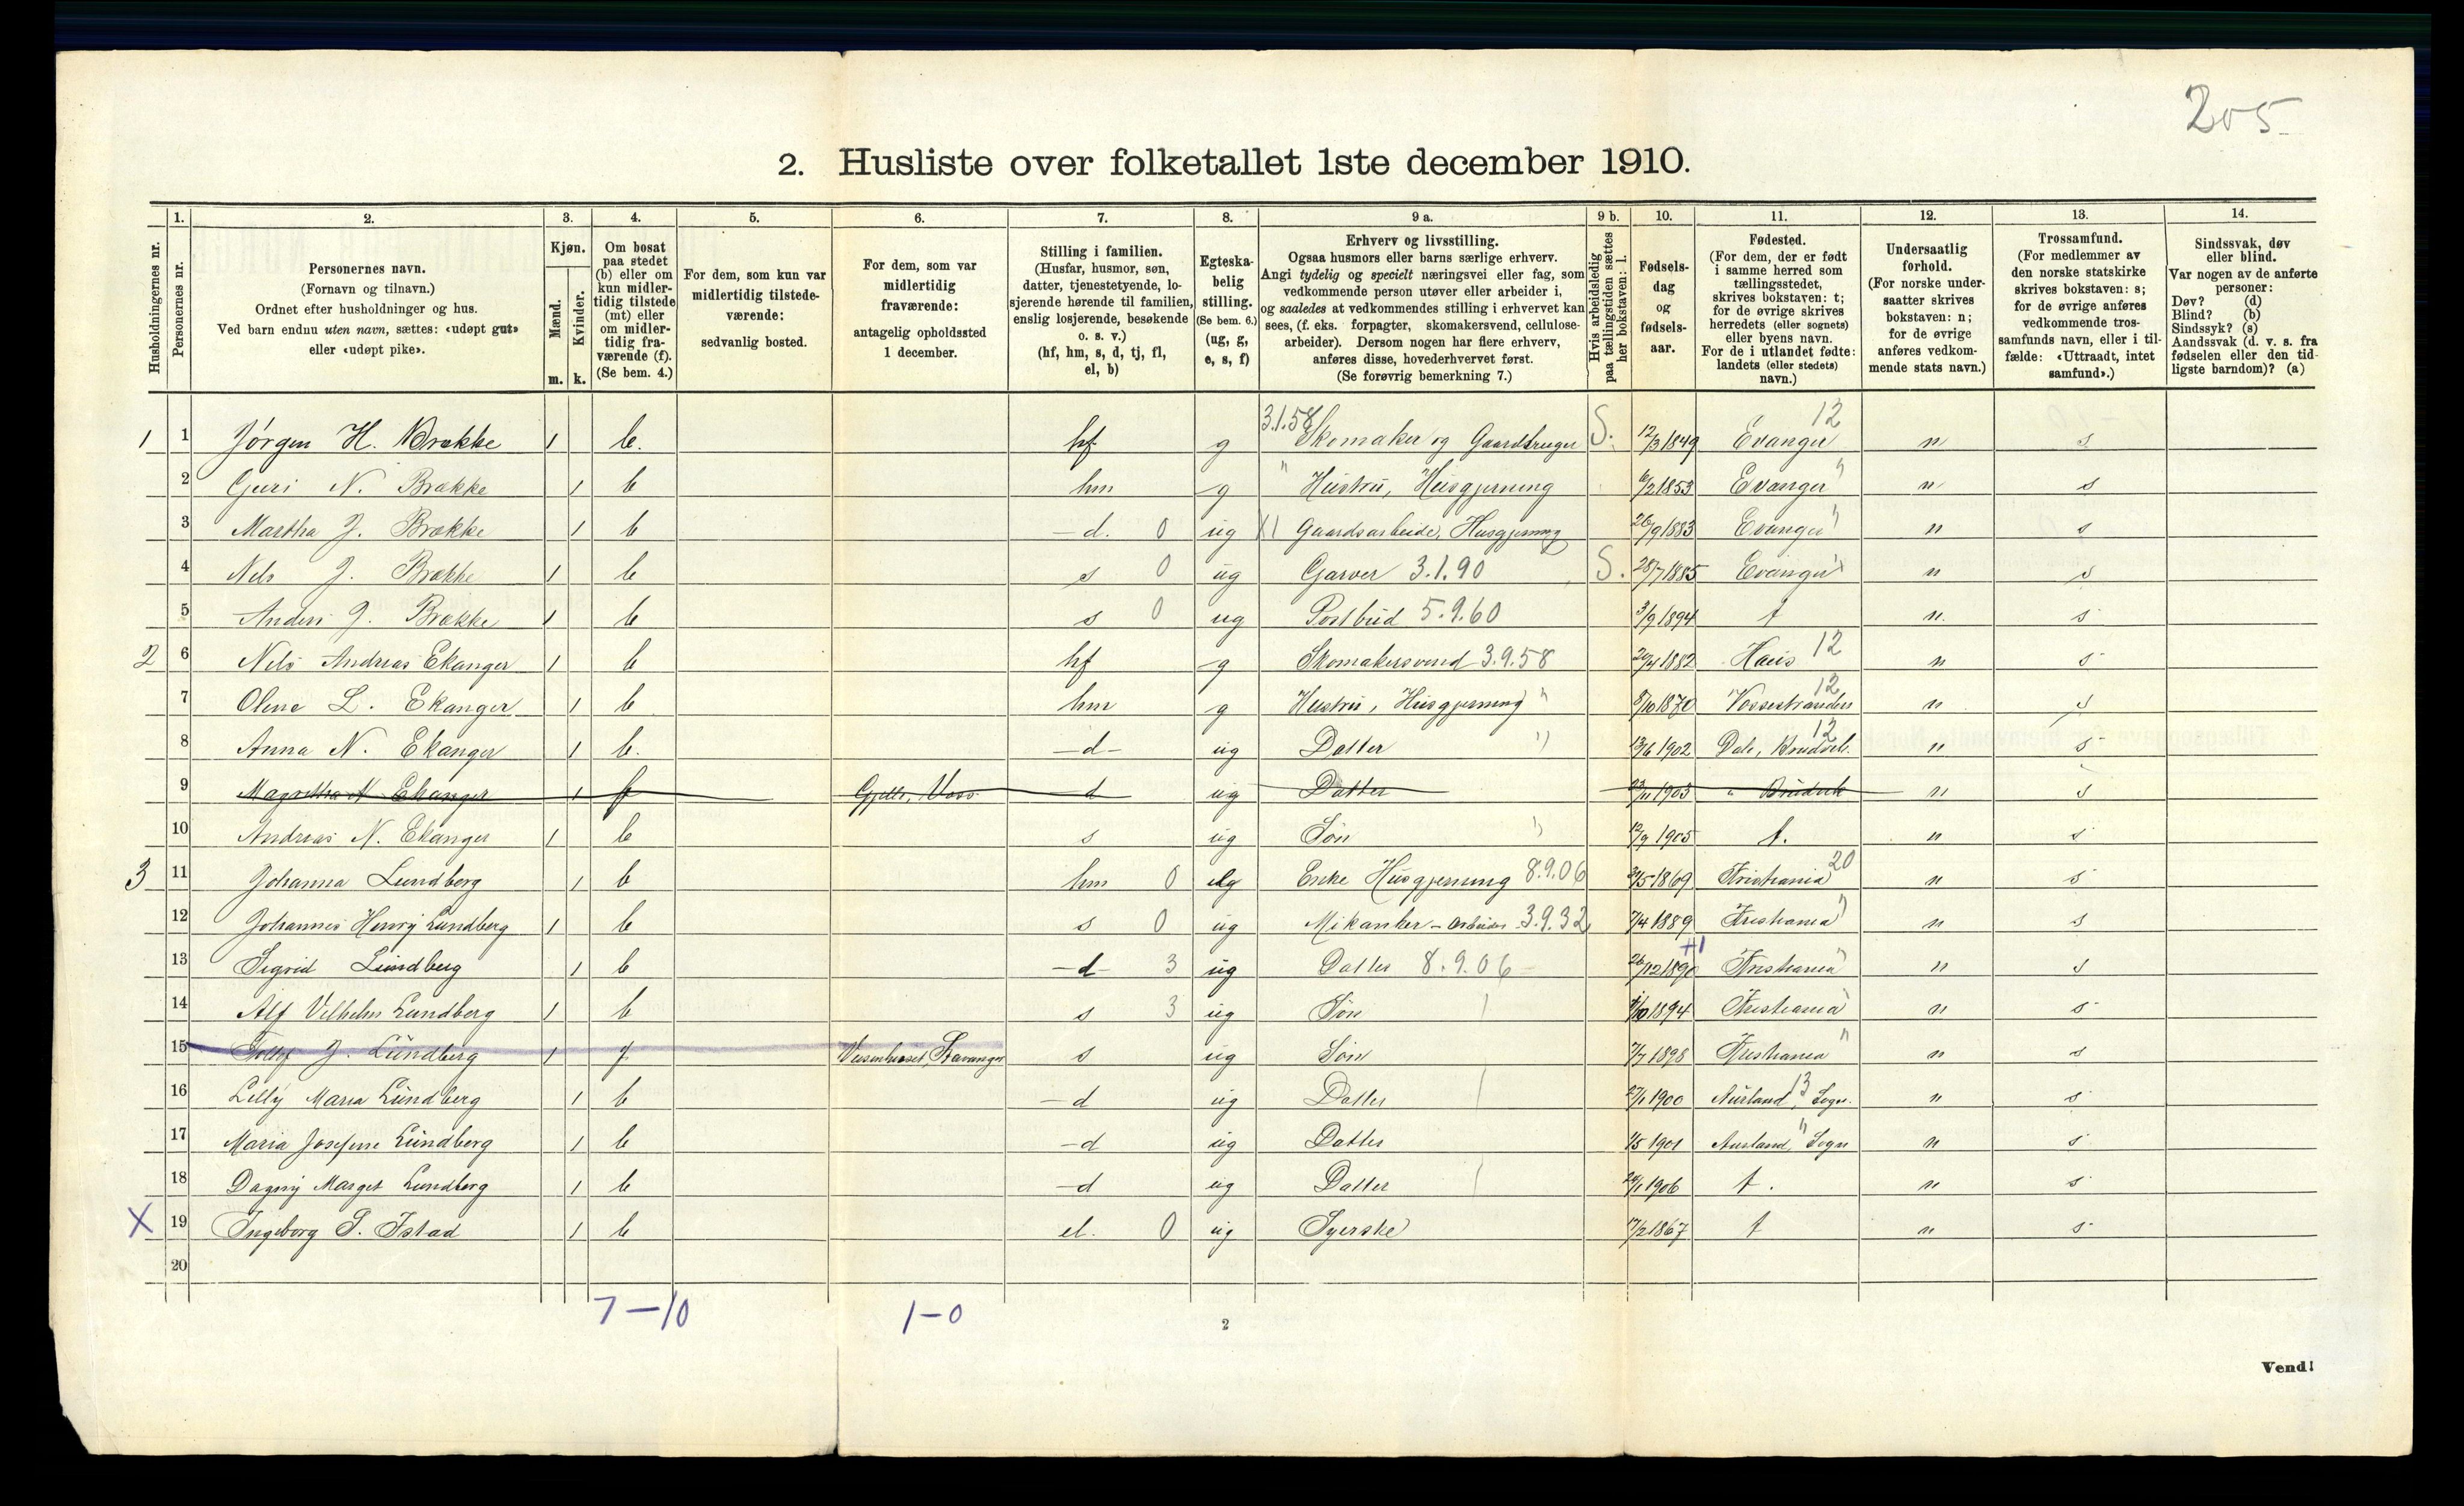 205
2. Husliste over folketallet 1ste december 1910.
Husholdningernes nr.
1.
Personernes nr.
2.
Personernes navn.
(Fornavn og tilnavn.)
Ordnet efter husholdninger og hus.
Ved barn endnu uten navn, sættes: «udøpt gut»
eller «udøpt pike».
3.
Kjøn.
Mænd.
Kvinder.
m. k.
4.
Om bosat
paa stedet
(b) eller om
kun midler-
tidig tilstede
(mt) eller
om midler-
tidig fra-
værende (f).
(Se bem. 4.)
5.
For dem, som kun var
midlertidig tilstede-
værende:
sedvanlig bosted.
6.
For dem, som var
midlertidig
fraværende:
antagelig opholdssted
1 december.
7.
Stilling i familien.
(Husfar, husmor, søn,
datter, tjenestetyende, lo-
sjerende hørende til familien,
enslig losjerende, besøkende
o. s. v.)
(hf, hm, s, d, tj, fl,
el, b)
8.
Egteska-
belig
stilling.
(Se bem. 6.)
(ug, g,
e, s, f)
9 a.
Erhverv og livsstilling.
Ogsaa husmors eller barns særlige erhverv.
Angi tydelig og specielt næringsvei eller fag, som
vedkommende person utøver eller arbeider i,
og saaledes at vedkommendes stilling i erhvervet kan
sees, (f. eks. forpagter, skomakersvend, cellulose-
arbeider). Dersom nogen har flere erhverv,
anføres disse, hovederhvervet først.
(Se forøvrig bemerkning 7.)
9 b.
Hvis arbeidsledig
paa tællingstiden sættes
her bokstaven: l.
10.
Fødsels-
dag
og
fødsels-
aar.
11.
Fødested.
(For dem, der er født
i samme herred som
tællingsstedet,
skrives bokstaven: t;
for de øvrige skrives
herredets (eller sognets)
eller byens navn.
For de i utlandet fødte:
landets (eller stedets)
navn.)
12.
Undersaatlig
forhold.
(For norske under-
saatter skrives
bokstaven: n;
for de øvrige
anføres vedkom-
mende stats navn.)
13.
Trossamfund.
(For medlemmer av
den norske statskirke
skrives bokstaven: s;
for de øvrige anføres
vedkommende tros-
samfunds navn, eller i til-
fælde: «Uttraadt, intet
samfund».)
14.
Sindssvak, døv
eller blind.
Var nogen av de anførte
personer:
Døv? (d)
Blind? (b)
Sindssyk? (s)
Aandssvak (d. v. s. fra
fødselen eller den tid-
ligste barndom)? (a)
1 1 Jørgen H. Brække 1 b. hf g 3.1.58 Skomaker og Gaardbruger S. 12/3 1849 Evanger 12 n s
2 Guri N. Brække 1 b hm g " Hustru, Husgjerning 6/2 1853 Evanger " n s
3 Martha J. Brække 1 b d. 0 ug X1 Gaardsarbeide, Husgjerning 26/9 1883 Evanger " n s
4 Nels J. Brække 1 b s 0 ug Garver 3.1.90 S. 28/7 1885 Evanger " n s
5 Anders J. Brække 1 b s 0 ug Postbud 5.9.60 3/9 1894 t n. s
2 6 Nels Andreas Ekanger 1 b hf g Skomakersvend 3.9.58 1882 Haus 12 n s
7 Olene L. Ekanger 1 b hm g Hustru, Husgjerning " 8/10 1870 Vossestranden 12 n s
8 Anna N. Ekanger 1 b. d ug Datter " 13/6 1902 Dale, Brudvik 12 n s
9 Magretha N Ekanger 1 f Gjelle, Voss d ug Datter 23/11 1903 " Brudvik n s
10 Andreas N. Ekanger 1 b s ug Søn " 12/9 1905 t. n s
3 11 Johanna Lundberg 1 b hm 0 Enke Husgjerning 8.9.06 1869 Kristiania 20 n s
12 Johannes Henry Lundberg 1 b s 0 ug Mikaniker-Arbeider 3.9.32 7/4 1889 Kristiania " n s
13 Sigrid Lundberg 1 b d 3 ug Datter 8.9.06 26/12 1890 +1 Kristiania " n s
14 Alf Vilhelm Lundberg 1 b s 3 ug Søn 1894 Kristiania " n s
15 J. Lundberg 1 f Veisenhuset, Stavanger s ug Søn 7/7 1898 Kristiania " n s
16 Lilly Maria Lundberg 1 b d ug Datter 27/1 1900 Aurland, Sogn. 13 n s
17 Maria Josefine Lundberg 1 b d ug Datter 1/5 1901 Aurland, Sogn " n s
18 Dagny Marget Lundberg 1 b d ug Datter 1906 t. n s
X 19 Ingeborg S. Istad 1 b el. 0 ug Syerske 17/2 1867 t n s
20
7-10 1-0
2
Vend!